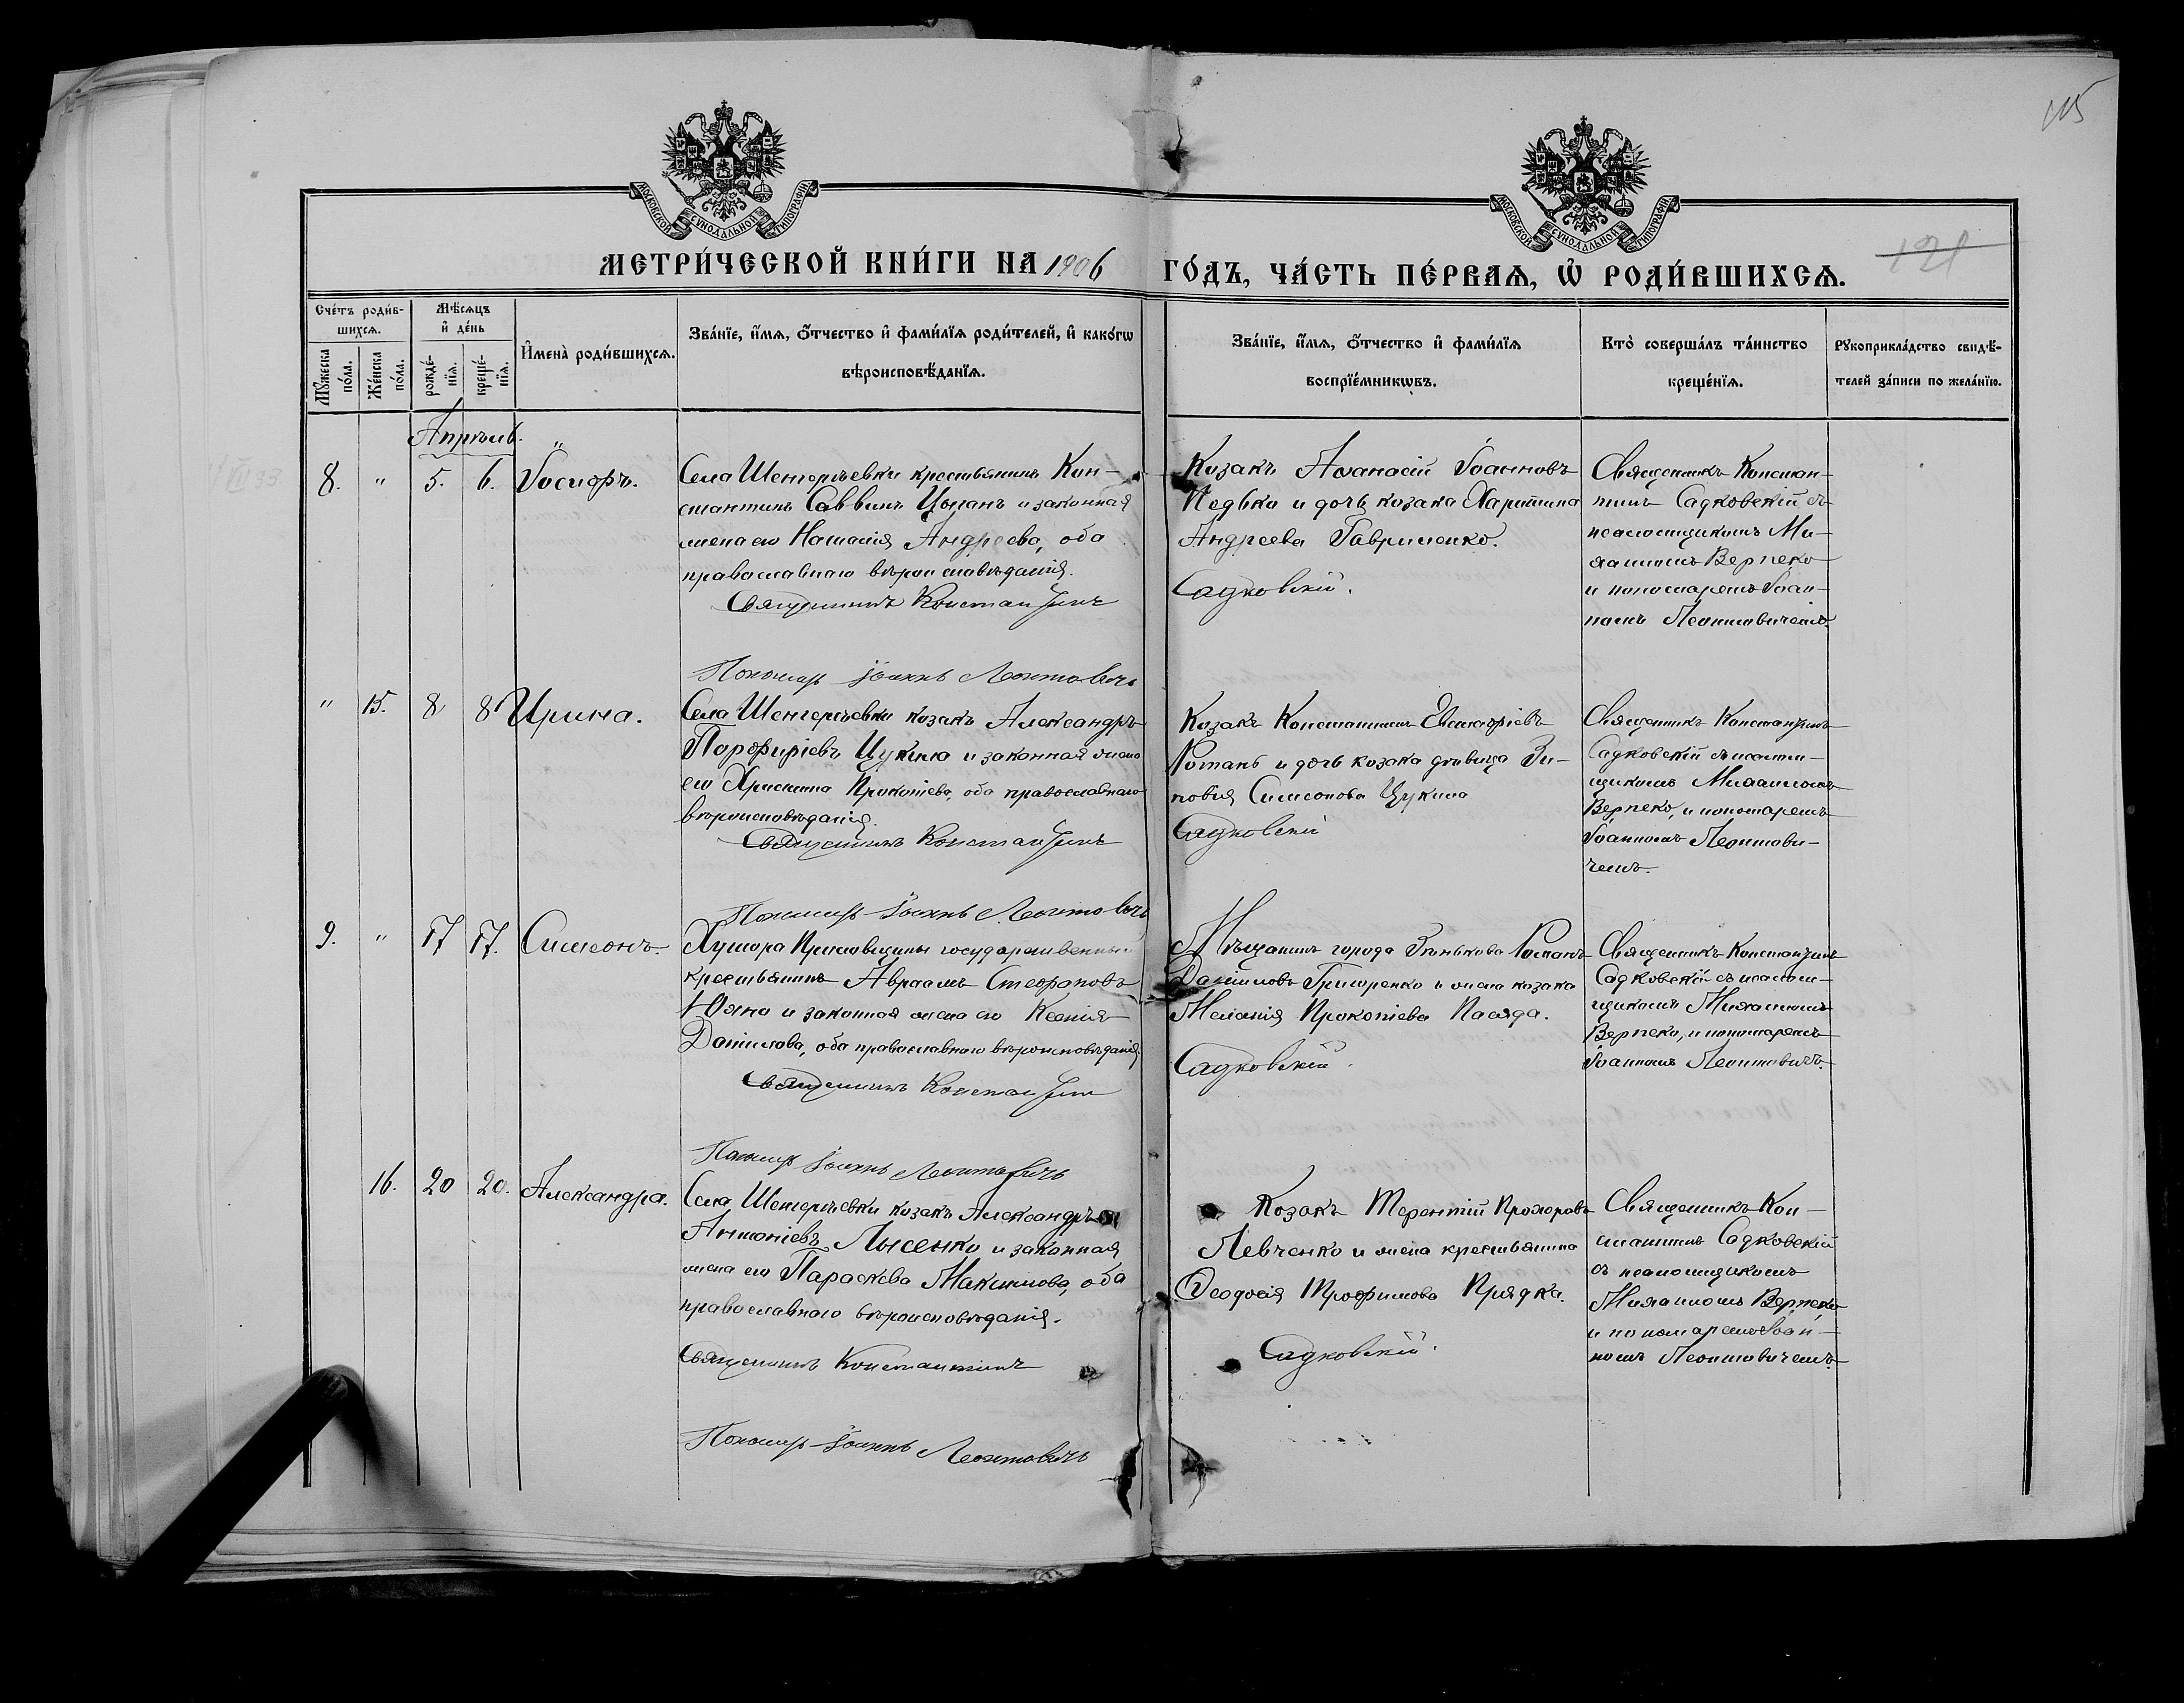 115
МОСКОВСКОЙ СѴНОДАЛЬНОЙ ТИПОГРАФІИ
МОСКОВСКОЙ СѴНОДАЛЬНОЙ ТИПОГРАФІИ
МЕТРИ́ЧЕСКОЙ КНИ́ГИ НА 1906 ГО́ДЪ, ЧА́СТЬ ПЕ́РВАѦ, Ѽ РОДИ́ВШИХСѦ.
121
Сче́тъ роди́в-
шихсѧ.
Мꙋ́жеска по́ла.
Же́нска по́ла.
Мѣ́сѧцъ
и҆ де́нь
рожде́-
нїѧ.
креще́-
нїѧ.
И҆мена̀ роди́вшихсѧ.
Зва́нїе, и҆́мѧ, ѻ҆́тчество и҆ фами́лїѧ роди́телей, и҆ како́гѡ
вѣроисповѣ́данїѧ.
Зва́нїе, и҆́мѧ, ѻ҆́тчество и҆ фами́лїѧ
воспрїе́мникѡвъ.
Кто̀ соверша́лъ та́инство
креще́нїѧ.
Рꙋкоприкла́дство свидѣ́-
телей за́писи по жела́нїю.
Апрѣль.
8. " 5. 6. Іосифъ.
Села Шенгерѣевки крестьянинъ Кон-
стантинъ Саввинъ Цыганъ и законная
жена его Наталія Андреева, оба
православнаго вѣроисповѣданія.
Священникъ Константинъ
Пономарь Іоаннъ Леонтовичъ
Козакъ Аѳанасій Іоанновъ
Педько и дочь козака Харитина
Андреева Гавриленко.
Садковскій.
Священникъ Констан-
тинъ Садковскій съ
псаломщикомъ Ми-
хаиломъ Вернеко
и пономаремъ Іоан-
номъ Леонтовичемъ.
" 15. 8 8 Ирина.
Села Шенгерѣевки козакъ Александръ
Порфиріевъ Цукило и законная жена
его Христина Прокопіева, оба православнаго
вѣроисповѣданія.
Священникъ Константинъ
Пономарь Іоаннъ Леонтовичъ
Козакъ Константинъ
Романъ и дочь козака дѣвица Зи-
новія Симеонова Цукила
Садковскій
Священникъ Константинъ
Садковскій съ псалом-
щикомъ Михаиломъ
Вернеко, и пономаремъ
Іоанномъ Леонтови-
чемъ.
9. " 17 17. Симеонъ.
Хутора государственный
крестьянинъ Авраамъ Стефановъ
Юхно и законная жена его Ксенія
Даніилова, оба православнаго вѣроисповѣданія.
Священникъ Константинъ
Пономарь Іоаннъ Леонтовичъ
Мѣщанинъ города Зѣнькова Романъ
Даніиловъ Григоренко и жена козака
Меланія Прокопіева Паляда.
Садковскій.
Священникъ Константинъ
Садковскій съ псалом-
щикомъ Михаиломъ
Вернеко, и пономаремъ
Іоанномъ Леонтовичъ.
16. 20 20. Александра.
Села Шенгерѣевки козакъ Александръ
Антоніевъ Лысенко и законная
жена его Параскева Максимова, оба
православнаго вѣроисповѣданія.
Священникъ Константинъ
Пономарь Іоаннъ Леонтовичъ
Козакъ Терентій Прохоровъ
Левченко и жена крестьянина
Ѳеодосія Трофимова Прядка.
Садковскій.
Священникъ Кон-
стантинъ Садковскій
съ псаломщикомъ
Михаиломъ Вернеко
и пономаремъ Іоан-
номъ Леонтовичемъ.